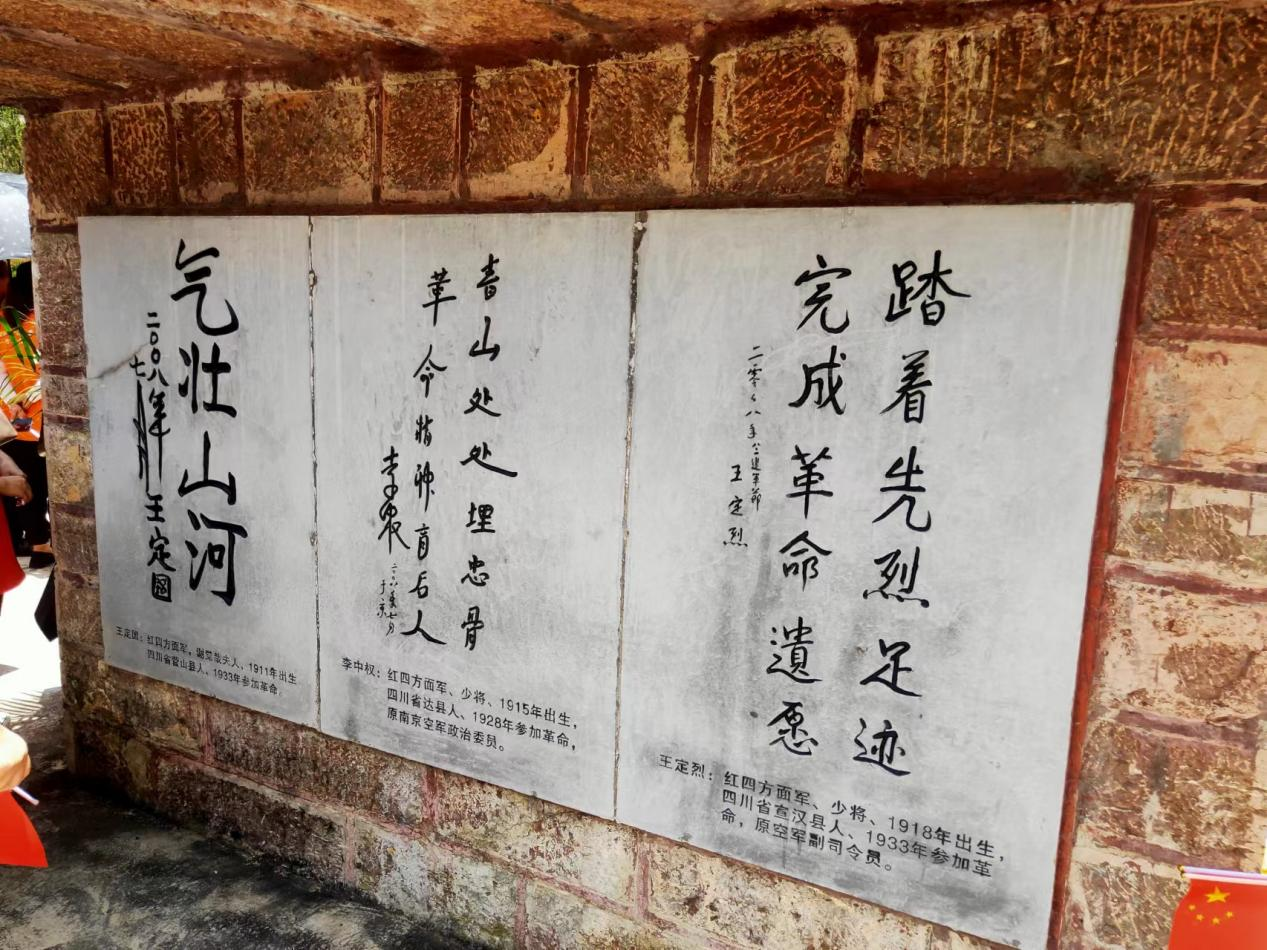 踏着先烈足迹
完成革命遗愿
二零零八年八一建军节
王定烈
王定烈：红四方面军、少将、1918年出生，
四川省宣汉县人、1933年参加革
命，原空军副司令员。
青山处处埋忠骨
革命精神育后人
李中权
二〇〇八年七月
于京
李中权：红四方面军、少将、1915年出生，
四川省达县人、1928年参加革命，
原南京空军政治委员。
气壮山河
二〇〇八年
七月
王定國
王定国：红四方面军，谢觉哉夫人、1911年出生
四川省营山县人、1933年参加革命，